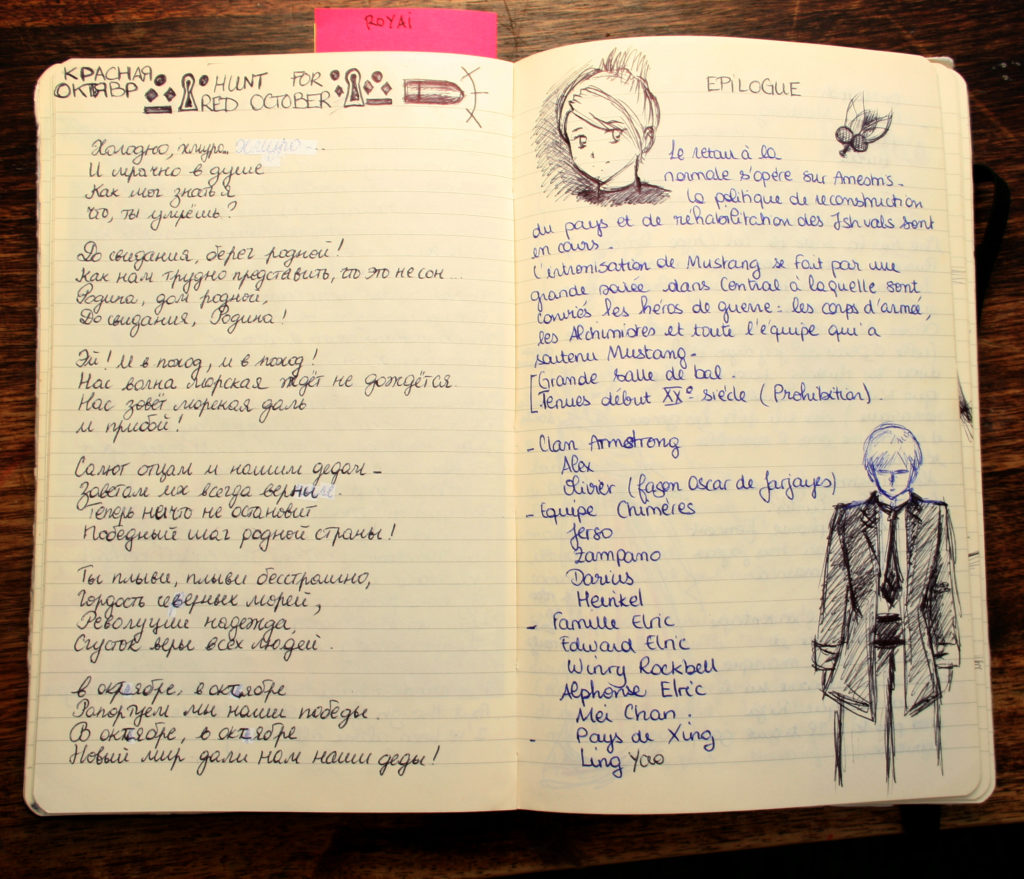 ROYAI
КРАСНАЯ
ОКТЯБР
HUNT FOR
RED OCTOBER
Холодно, хмуро..
И мрачно в душе
Как мог знать я
Что, ты умрёшь?
До свидания, берег родной!
Как нам трудно представить, что это не сон...
Родина, дом родной,
До свидания, Родина!
Эй! И в поход, и в поход!
Нас волна морская ждёт не дождётся.
Нас зовёт морская даль
и прибой!
Салют отцам и нашим дедам -
Заветам их всегда верны.
Теперь ничто не остановит
Победный шаг родной страны!
Ты плыви, плыви бесстрашно,
Гордость северных морей,
Революции надежда,
Сгусток веры всех людей.
в октябре, в октябре
Рапортуем мы наши победы.
В октябре, в октябре
Новый мир дали нам наши деды!
EPILOGUE
Le retour à la
normale s'opère sur Amestris.
La politique de reconstruction
du pays et de réhabilitation des Ishvals sont
en cours.
L'intronisation de Mustang se fait par une
grande soirée dans Central à laquelle sont
conviés les héros de guerre : les corps d'armée,
les Alchimistes et toute l'équipe qui a
soutenu Mustang.
[Grande salle de bal.
[Tenues début XX° siècle (Prohibition).
- Clan Armstrong
Alex
Olivier (façon Oscar de Jarjayes)
- Equipe Chimères
Jerso
Zampano
Darius
Heinkel
- Famille Elric
Edward Elric
Winry Rockbell
Alphonse Elric
Mei Chan.
- Pays de Xing
Ling Yao